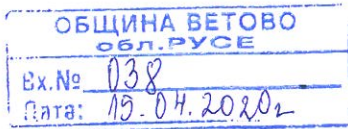 ОБЩИНА ВЕТОВО
обл.РУСЕ
Вх.№ 038
Дата: 15.04.2020г